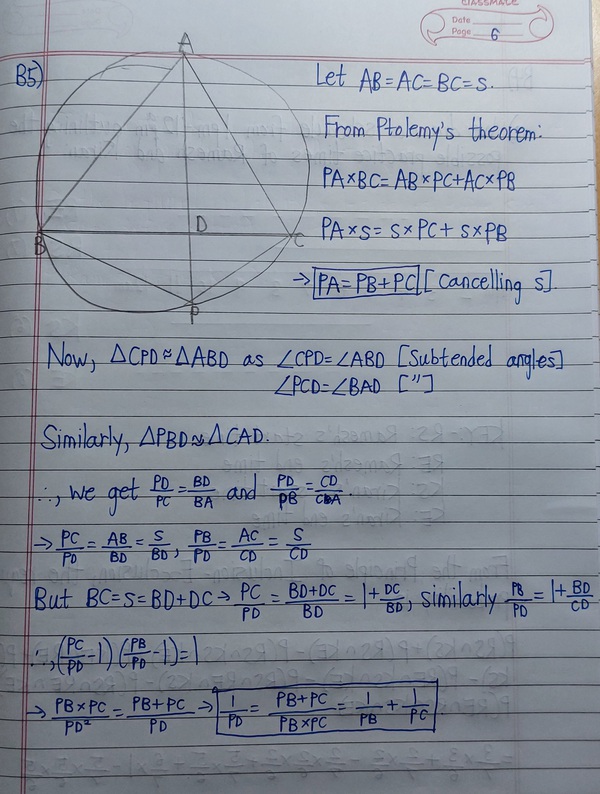 CLASSMATE
Date
Page 6
B5)
A
B
C
D
P
Let AB=AC=BC=S.
From Ptolemy's theorem:
PA×BC=AB×PC+AC×PB
PA×S=S×PC+S×PB
→ PA=PB+PC [Cancelling S].
Now, ΔCPD≈ΔABD as ∠CPD=∠ABD [Subtended angles]
∠PCD=∠BAD ["]
Similarly, ΔPBD≈ΔCAD.
∴, we get PD/PC=BD/BA and PD/PB=CD/CA.
→ PC/PD=AB/BD=S/BD, PB/PD=AC/CD=S/CD
But BC=S=BD+DC → PC/PD=BD+DC/BD=1+DC/BD, similarly PB/PD=1+BD/CD
∴, (PC/PD-1)(PB/PD-1)=1
→ PB×PC/PD²=PB+PC/PD → 1/PD=PB+PC/PB×PC=1/PB+1/PC